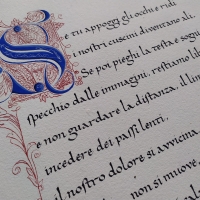 Se tu appoggi gli occhi e ridi
i nostri cuscini diventano ali.
Se poi pieghi la testa e sogni
specchio dalle immagini, restiamo lì
e non guardare la distanza, il
incedere dei passi lenti.
il nostro dolore si avvicina
non si muove,